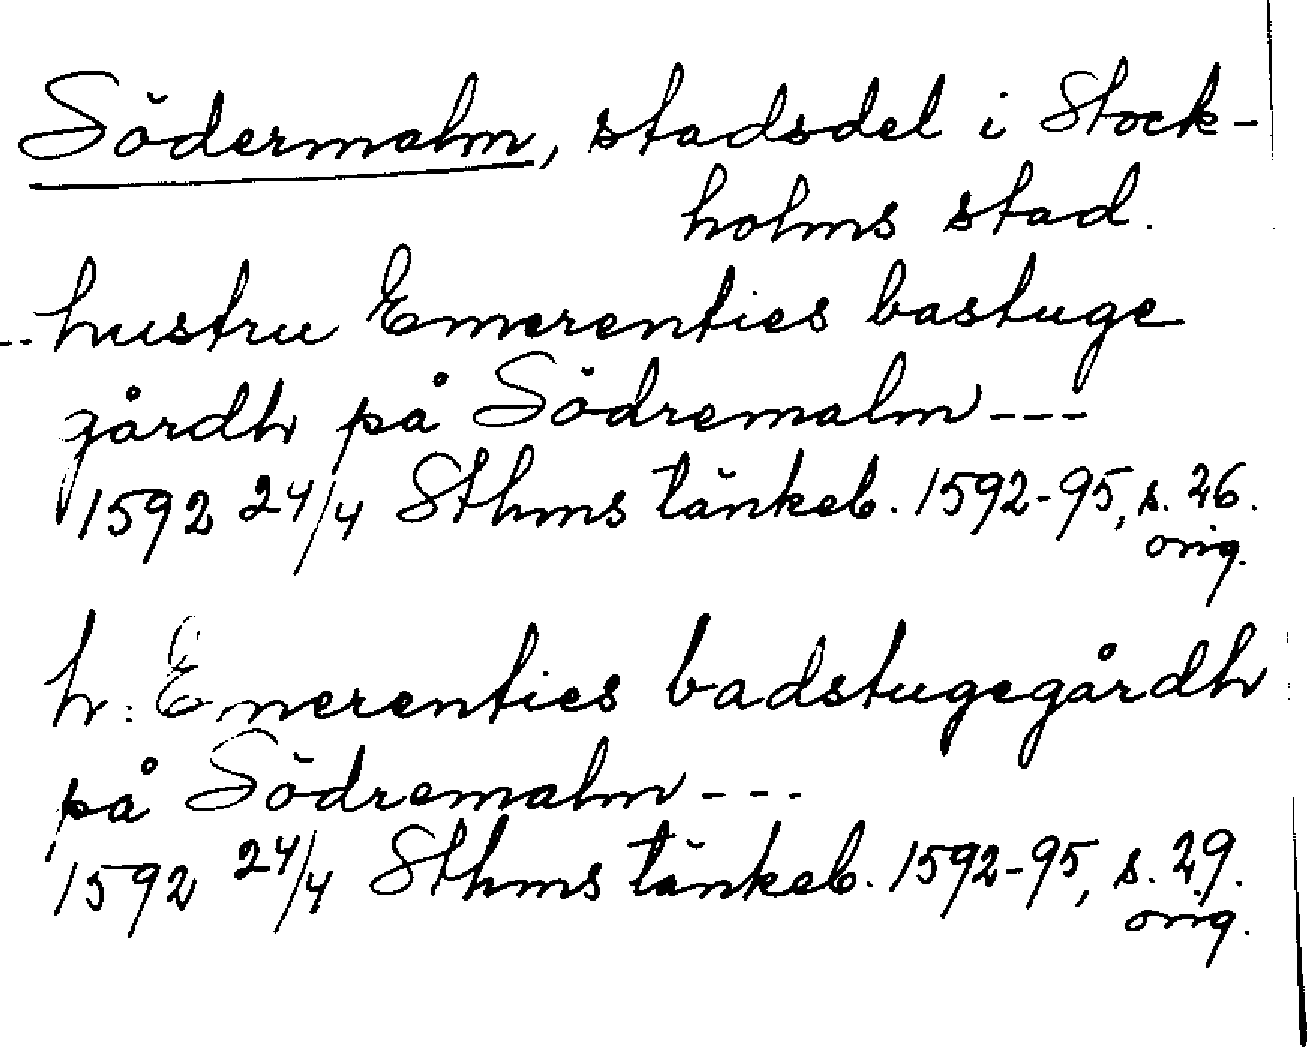 Södermalm, stadsdel i Stock-
holms stad.
-- hustru Emerenties bastuge
gårdh på Södremalm ---
1592 24/4 Sthms tänkeb. 1592-95, s. 26.
orig.
h: Emerenties badstugegårdh
på Södremalm ---
1592 24/4 Sthms tänkeb. 1592-95, s. 29.
orig.